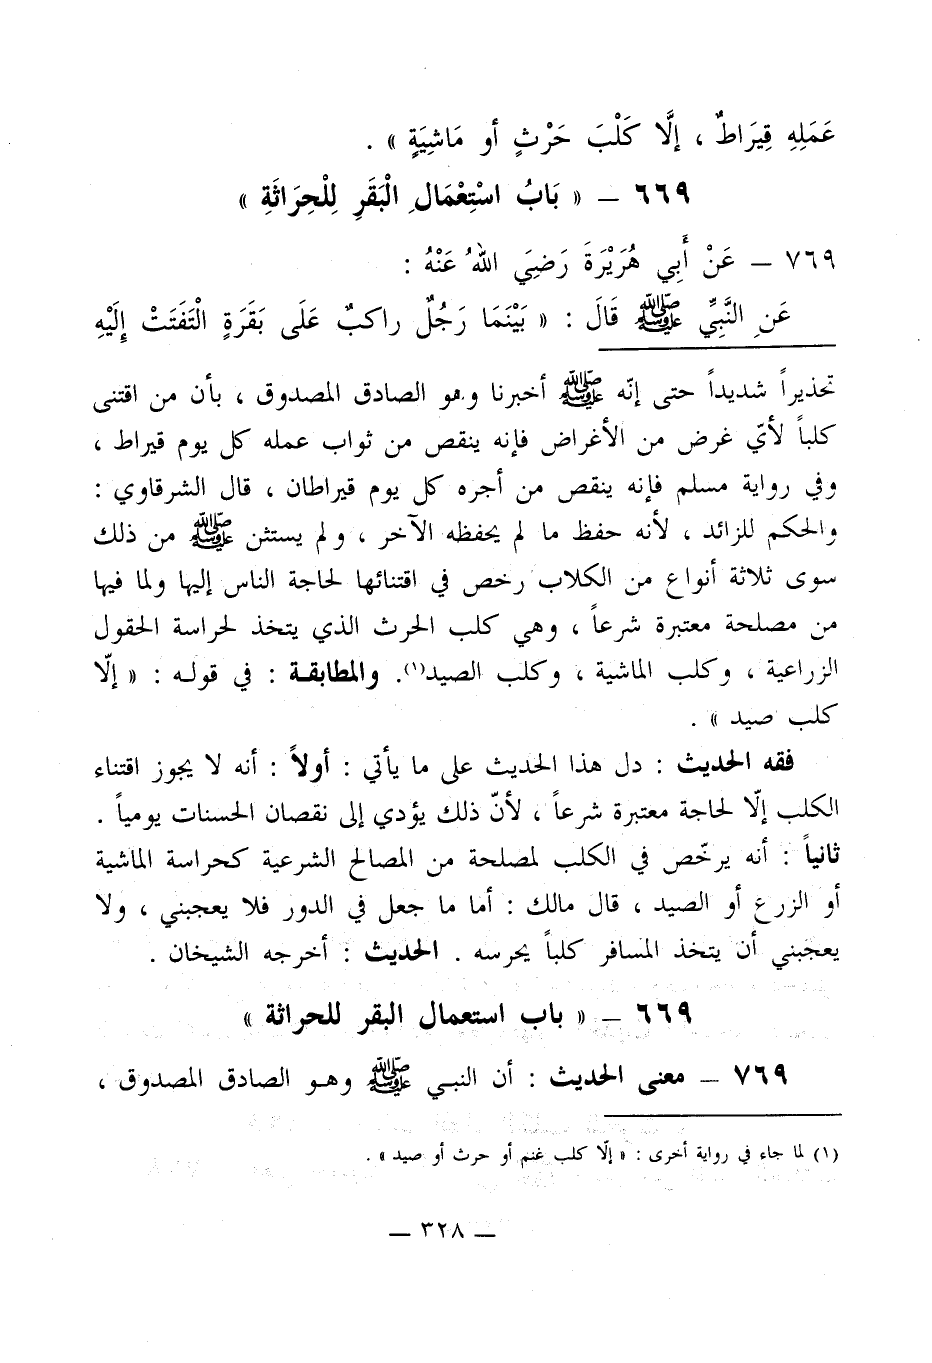 عَمَلِهِ قِيرَاطٌ ، إلَّا كَلْبَ حَرْثٍ أو مَاشِيَةٍ » .
٦٦٩ – « بَابُ اسْتِعْمَالِ الْبَقَرِ لِلْحِرَاثَةِ »
٧٦٩ – عَنْ أَبِي هُرَيْرَةَ رَضِيَ اللهُ عَنْهُ :
عَنِ النَّبِيِّ ﷺ قَالَ : « بَيْنَمَا رَجُلٌ راكبٌ عَلَى بَقَرَةٍ الْتَفَتَتْ إِلَيْهِ
تحذيراً شديداً حتى إنّه ﷺ أخبرنا وهو الصادق المصدوق ، بأن من اقتنى
كلباً لأيّ غرض من الأغراض فإنه ينقص من ثواب عمله كل يوم قيراط ،
وفي رواية مسلم فإنه ينقص من أجره كل يوم قيراطان ، قال الشرقاوي :
والحكم للزائد ، لأنه حفظ ما لم يحفظه الآخر ، ولم يستثن ﷺ من ذلك
سوى ثلاثة أنواع من الكلاب رخص في اقتنائها لحاجة الناس إليها ولما فيها
من مصلحة معتبرة شرعاً ، وهي كلب الحرث الذي يتخذ لحراسة الحقول
الزراعية ، وكلب الماشية ، وكلب الصيد(١). والمطابقة : في قوله : « إلّا
كلب صيد » .
فقه الحديث : دل هذا الحديث على ما يأتي : أولاً : أنه لا يجوز اقتناء
الكلب إلّا لحاجة معتبرة شرعاً ، لأنّ ذلك يؤدي إلى نقصان الحسنات يومياً .
ثانياً : أنه يرخّص في الكلب لمصلحة من المصالح الشرعية كحراسة الماشية
أو الزرع أو الصيد ، قال مالك : أما ما جعل في الدور فلا يعجبني ، ولا
يعجبني أن يتخذ المسافر كلباً يحرسه . الحديث : أخرجه الشيخان .
٦٦٩ – « باب استعمال البقر للحراثة »
٧٦٩ – معنى الحديث : أن النبي ﷺ وهو الصادق المصدوق ،
(١) لما جاء في رواية أخرى : « إلّا كلب غنم أو حرث أو صيد » .
– ٣٢٨ –